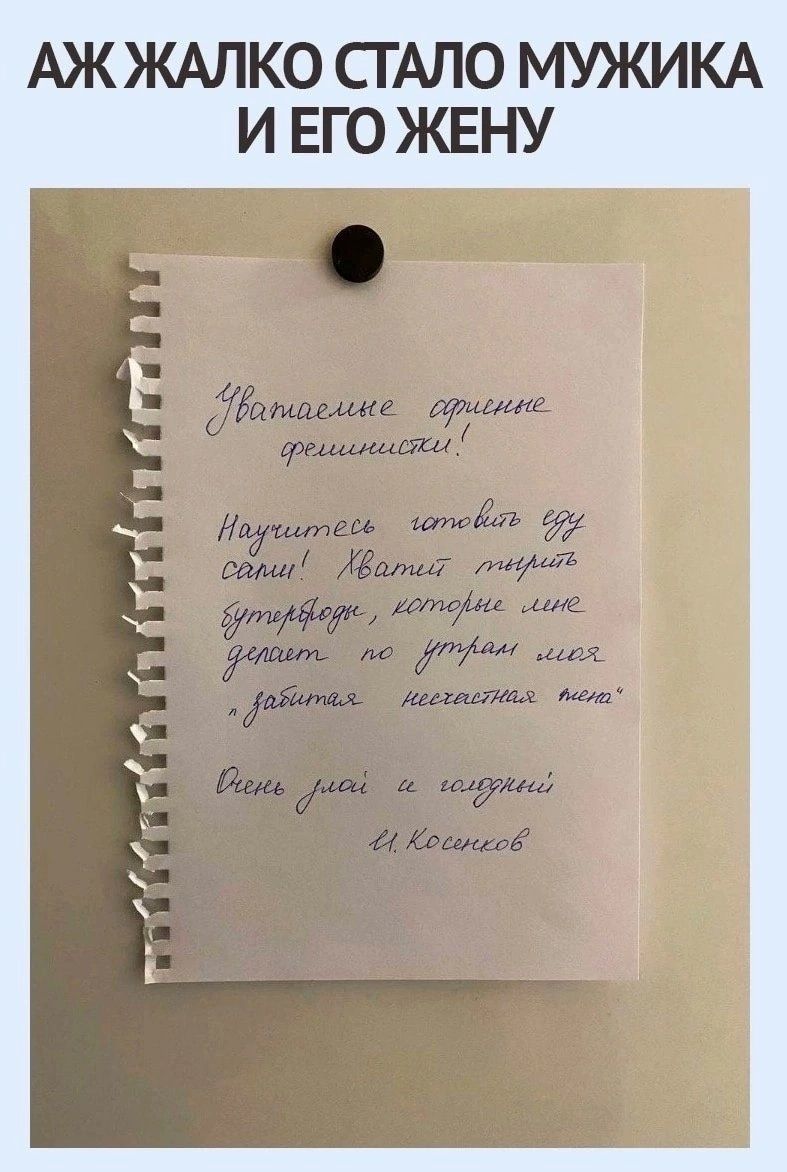 АЖ ЖАЛКО СТАЛО МУЖИКА
И ЕГО ЖЕНУ
Уважаемые офисные
феминистки!
Научитесь готовить еду
сами! Хватит тырить
бутерброды, которые мне
делает по утрам моя
„забитая несчастная жена“
Очень злой и голодный
И. Косенков